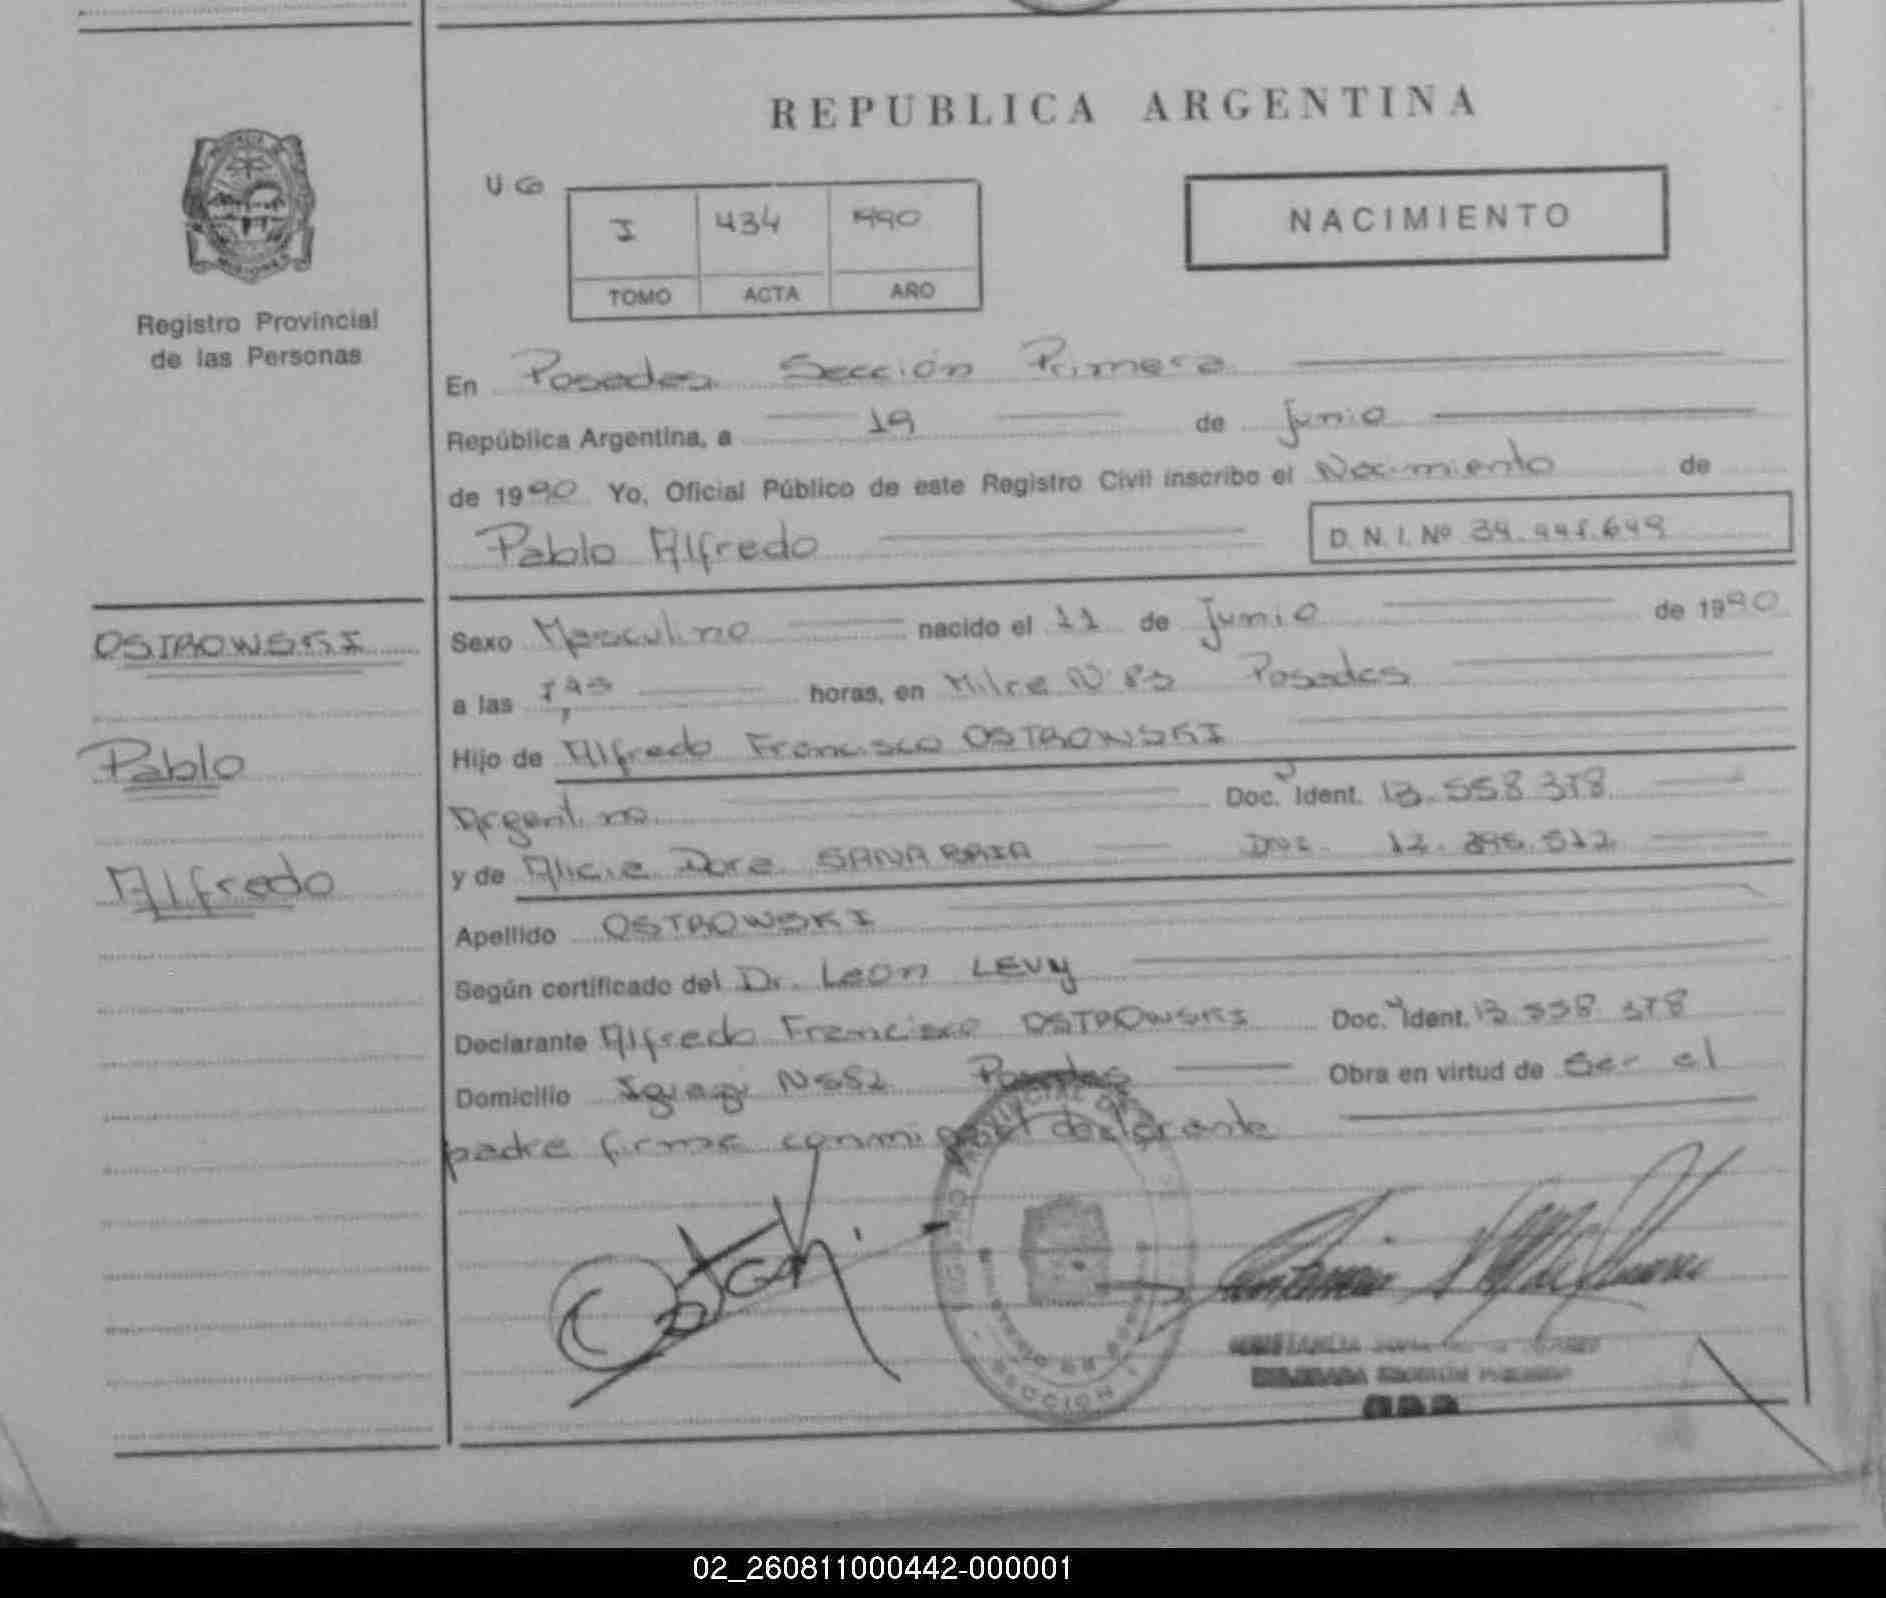 REPUBLICA ARGENTINA
UG
I 434 1990
TOMO ACTA AÑO
NACIMIENTO
Registro Provincial
de las Personas
En Posadas Sección Primera
República Argentina, a 19 de Junio
de 1990 Yo, Oficial Público de este Registro Civil inscribo el Nacimiento de
Pablo Alfredo D.N.I. Nº
OSTROWSKI
Pablo
Alfredo
Sexo Masculino nacido el 11 de Junio de 1990
a las horas, en Mitre Nº Posadas
Hijo de Alfredo Francisco OSTROWSKI
Argentino Doc. Ident. 13.558.378
y de Alicia Dora SANABRIA DNI 12.
Apellido OSTROWSKI
Según certificado del Dr. León LEVY
Declarante Alfredo Francisco OSTROWSKI Doc. Ident. 13.558.378
Domicilio Posadas Obra en virtud de ser el
padre firma conmigo el declarante
SECCION 1